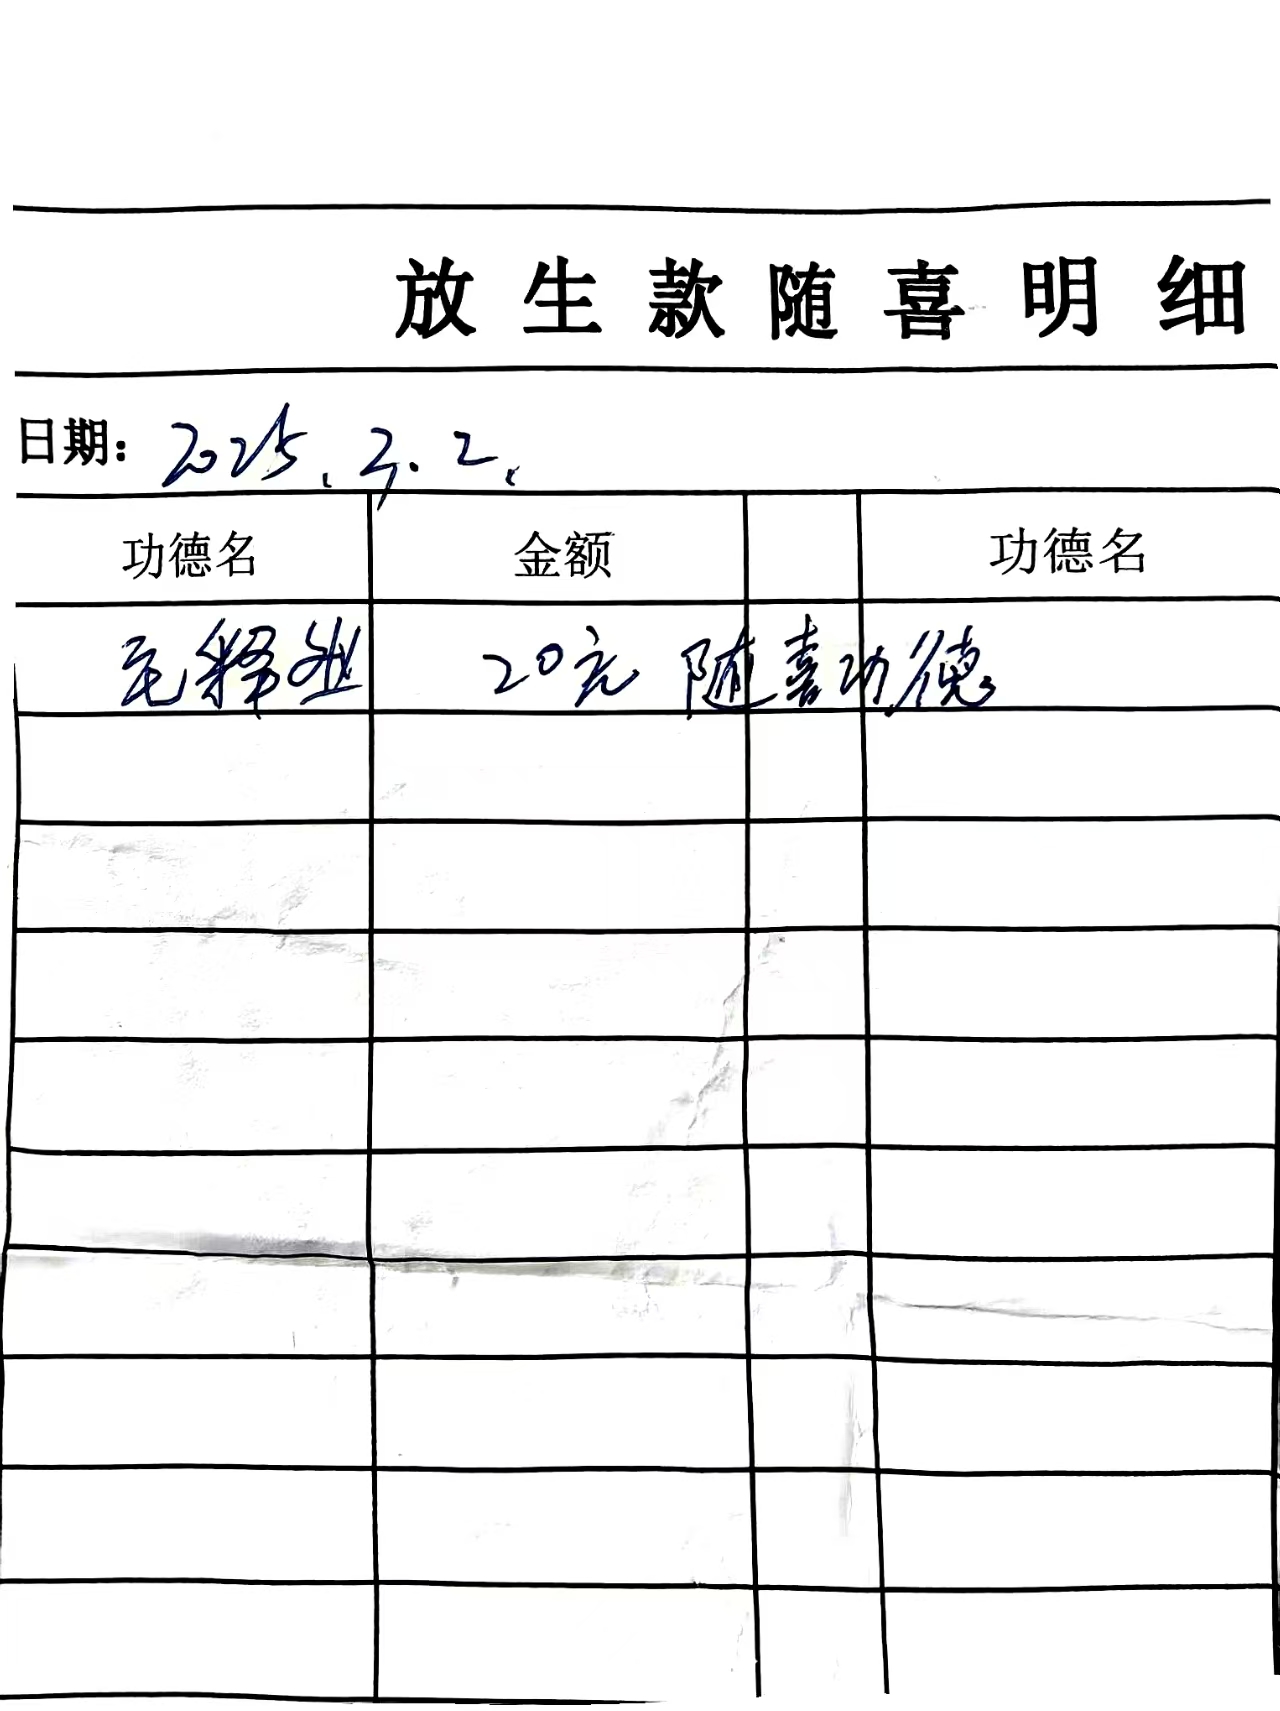 放生款随喜明细
日期：2025.3.2.
功德名 金额 功德名
毛释 20元 随喜功德